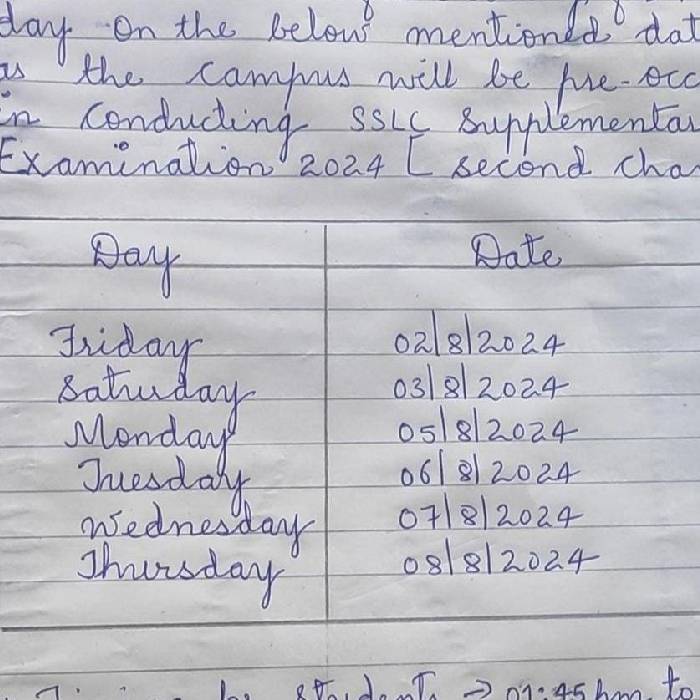 day on the below mentioned dat
as the campus will be pre-occ
in conducting SSLC Supplementar
Examination 2024 [ second cha
Day Date
Friday 02/8/2024
Satruday 03/8/2024
Monday 05/8/2024
Tuesday 06/8/2024
Wednesday 07/8/2024
Thursday 08/8/2024
students → 01:45 pm to